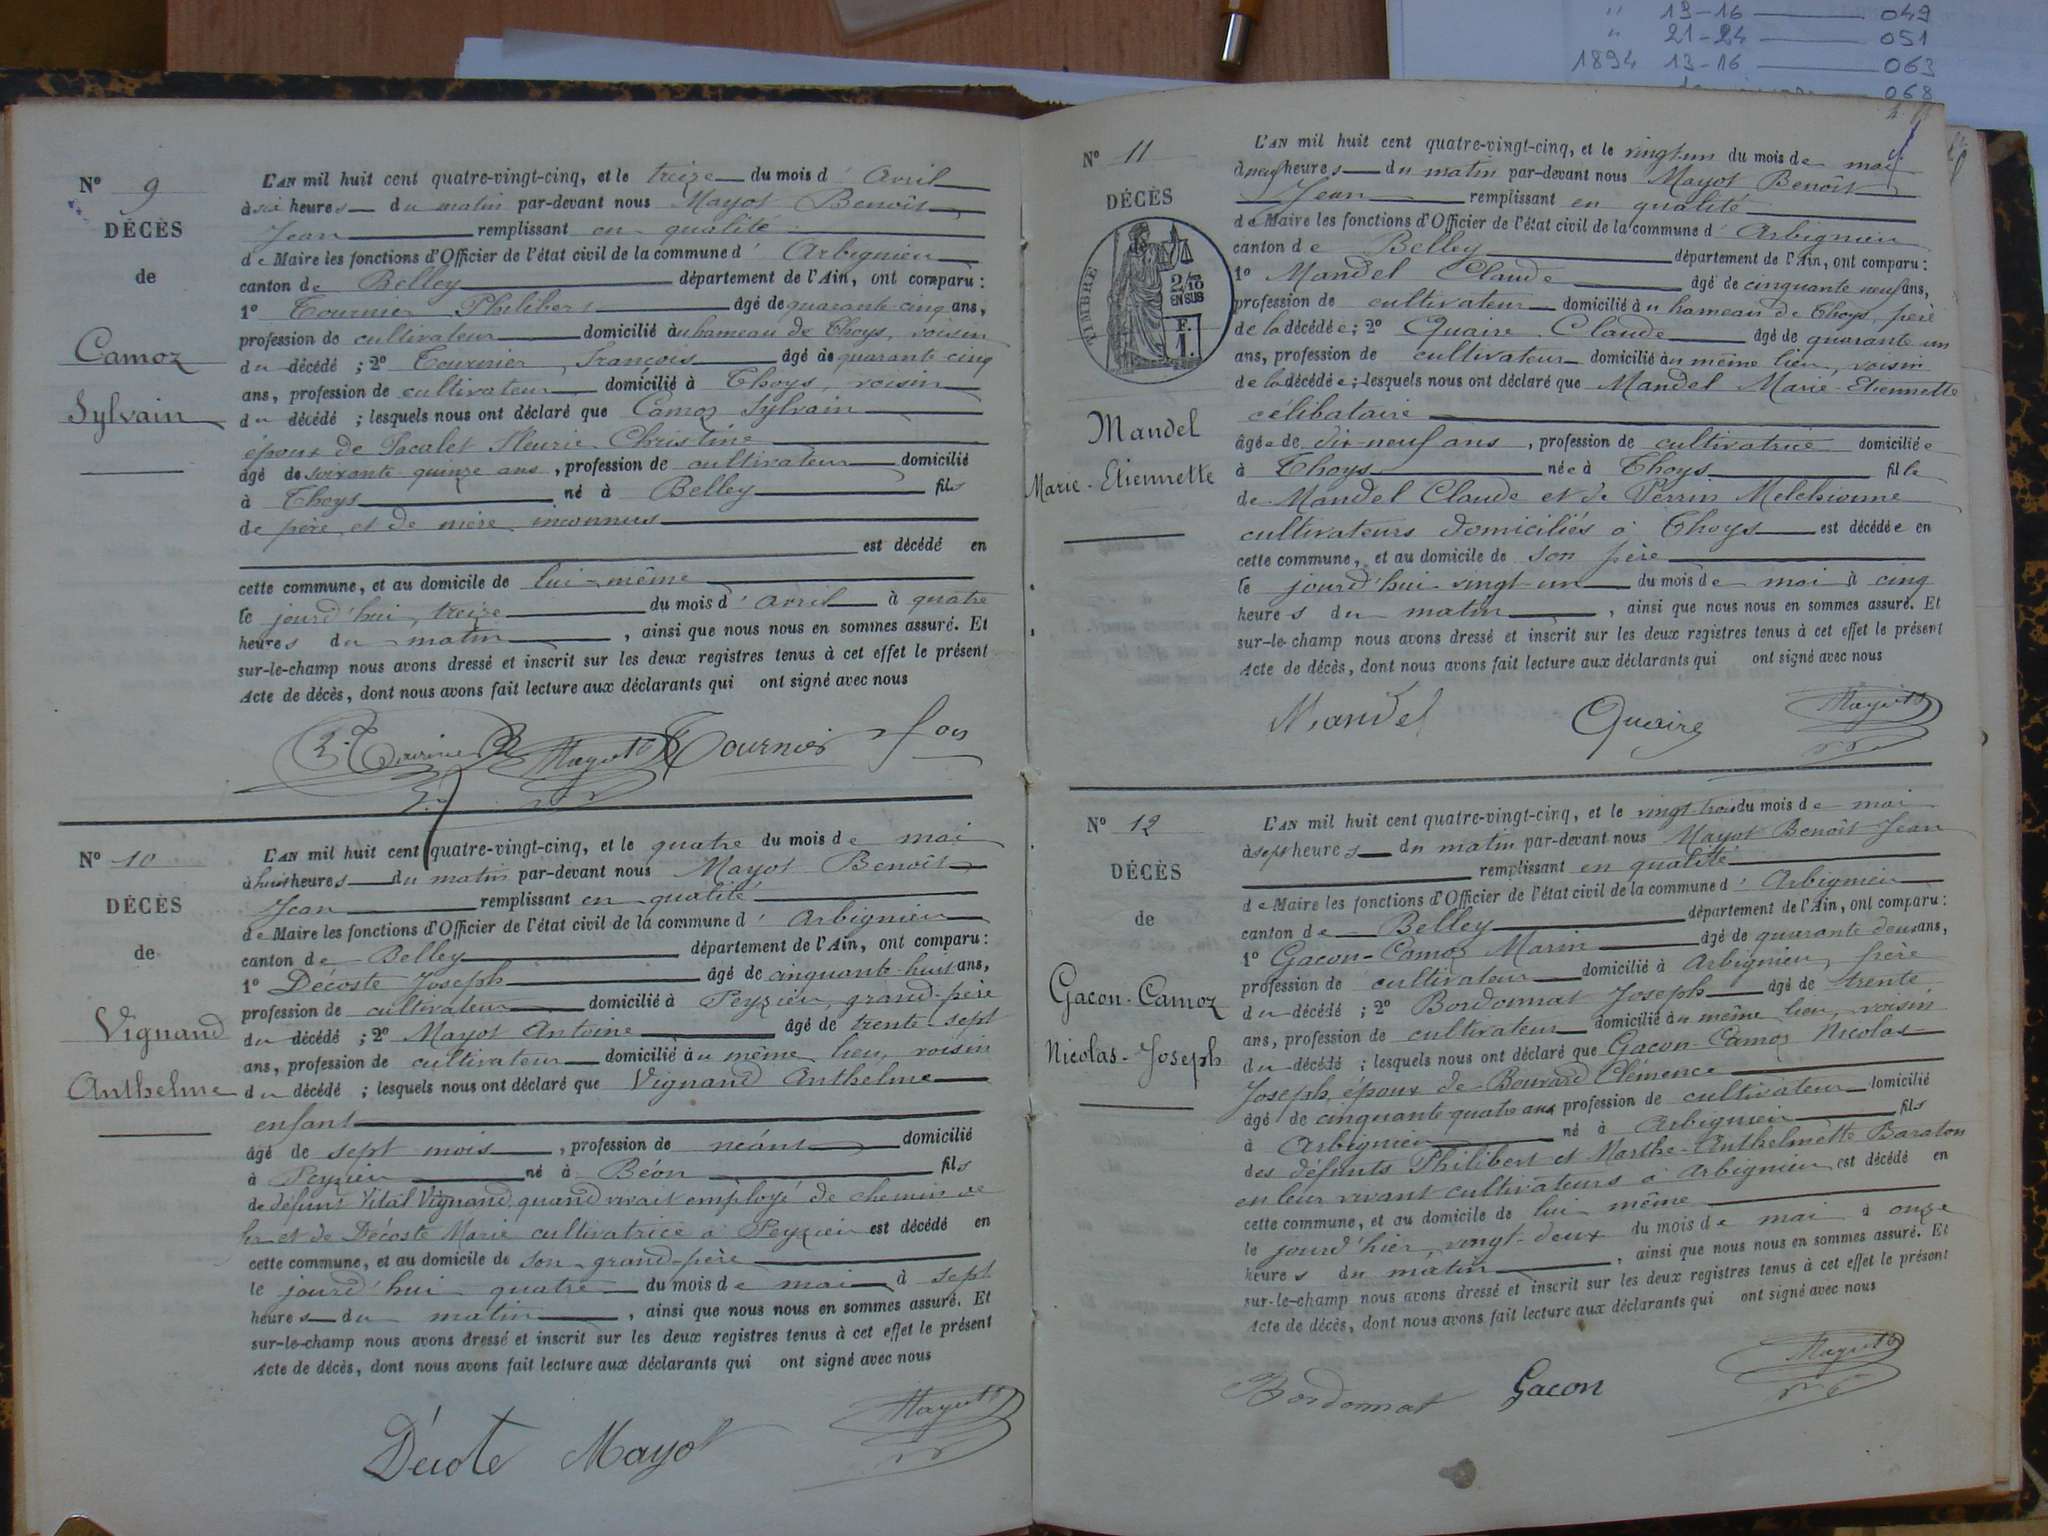 " 13-16 — 049
" 21-24 — 051
1894 13-16 — 063
068
N° 9
DÉCÈS
de
Camoz
Sylvain
L'AN mil huit cent quatre-vingt-cinq, et le treize du mois d'Avril
à six heures du matin par-devant nous Mayot Benoît
Jean remplissant en qualité
de Maire les fonctions d'Officier de l'état civil de la commune d'Arbignieu
canton de Belley département de l'Ain, ont comparu :
1° Tournier Philibert âgé de quarante-cinq ans,
profession de cultivateur domicilié au hameau de Thoys, voisin
du décédé ; 2° Tournier, François âgé de quarante cinq
ans, profession de cultivateur domicilié à Thoys, voisin
du décédé ; lesquels nous ont déclaré que Camoz Sylvain
époux de Pacalet Fleurie Christine
âgé de soixante quinze ans, profession de cultivateur domicilié
à Thoys né à Belley fils
de père et de mère inconnus
est décédé en
cette commune, et au domicile de lui-même
le jourd'hui, treize du mois d'avril à quatre
heures du matin, ainsi que nous nous en sommes assuré. Et
sur-le-champ nous avons dressé et inscrit sur les deux registres tenus à cet effet le présent
Acte de décès, dont nous avons fait lecture aux déclarants qui ont signé avec nous
Mayot Tournier fois
N° 10
DÉCÈS
de
Vignand
Anthelme
L'AN mil huit cent quatre-vingt-cinq, et le quatre du mois de mai
à huit heures du matin par-devant nous Mayot Benoît
Jean remplissant en qualité
de Maire les fonctions d'Officier de l'état civil de la commune d'Arbignieu
canton de Belley département de l'Ain, ont comparu :
1° Décoste Joseph âgé de cinquante-huit ans,
profession de cultivateur domicilié à Peyzieu, grand-père
du décédé ; 2° Mayot Antoine âgé de trente-sept
ans, profession de cultivateur domicilié au même lieu, voisin
du décédé ; lesquels nous ont déclaré que Vignand Anthelme
enfant
âgé de sept mois, profession de néant domicilié
à Peyzieu né à Béon fils
de défunt Vital Vignand, quand vivait employé de chemin de
fer et de Décoste Marie cultivatrice à Peyzieu est décédé en
cette commune, et au domicile de son grand-père
le jourd'hui quatre du mois de mai à sept
heures du matin, ainsi que nous nous en sommes assuré. Et
sur-le-champ nous avons dressé et inscrit sur les deux registres tenus à cet effet le présent
Acte de décès, dont nous avons fait lecture aux déclarants qui ont signé avec nous
Décote Mayot Mayot
N° 11
DÉCÈS
TIMBRE
2/10
EN SUS
F.
1.
Mandel
Marie-Etiennette
L'AN mil huit cent quatre-vingt-cinq, et le vingt un du mois de mai
à neuf heures du matin par-devant nous Mayot Benoît
Jean remplissant en qualité
de Maire les fonctions d'Officier de l'état civil de la commune d'Arbignieu
canton de Belley département de l'Ain, ont comparu :
1° Mandel Claude âgé de cinquante neuf ans,
profession de cultivateur domicilié au hameau de Thoys, père
de la décédée ; 2° Quaire Claude âgé de quarante un
ans, profession de cultivateur domicilié au même lieu, voisin
de la décédée ; lesquels nous ont déclaré que Mandel Marie-Etiennette
célibataire
âgée de dix-neuf ans, profession de cultivatrice domiciliée
à Thoys née à Thoys fille
de Mandel Claude et de Perrin Melchionne
cultivateurs domiciliés à Thoys est décédée en
cette commune, et au domicile de son père
le jourd'hui vingt-un du mois de mai à cinq
heures du matin, ainsi que nous nous en sommes assuré. Et
sur-le-champ nous avons dressé et inscrit sur les deux registres tenus à cet effet le présent
Acte de décès, dont nous avons fait lecture aux déclarants qui ont signé avec nous
Mandel Quaire Mayot
N° 12
DÉCÈS
de
Gacon-Camoz
Nicolas-Joseph
L'AN mil huit cent quatre-vingt-cinq, et le vingt trois du mois de mai
à sept heures du matin par-devant nous Mayot Benoît Jean
remplissant en qualité
de Maire les fonctions d'Officier de l'état civil de la commune d'Arbignieu
canton de Belley département de l'Ain, ont comparu :
1° Gacon-Camoz Marin âgé de quarante deux ans,
profession de cultivateur domicilié à Arbignieu, frère
du décédé ; 2° Bordonnat Joseph âgé de trente
ans, profession de cultivateur domicilié au même lieu, voisin
du décédé ; lesquels nous ont déclaré que Gacon-Camoz Nicolas
Joseph, époux de Bouvard Clémence
âgé de cinquante quatre ans profession de cultivateur domicilié
à Arbignieu né à Arbignieu fils
des défunts Philibert et Marthe-Anthelmette Baraton
en leur vivant cultivateurs à Arbignieu est décédé en
cette commune, et au domicile de lui même
le jourd'hier, vingt-deux du mois de mai à onze
heures du matin, ainsi que nous nous en sommes assuré. Et
sur-le-champ nous avons dressé et inscrit sur les deux registres tenus à cet effet le présent
Acte de décès, dont nous avons fait lecture aux déclarants qui ont signé avec nous
Bordonnat Gacon Mayot